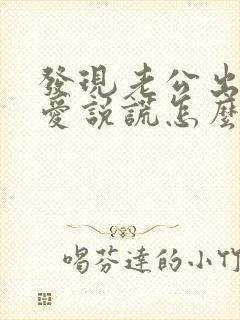 發現老公出
愛說謊怎麼
喝芬達的小竹